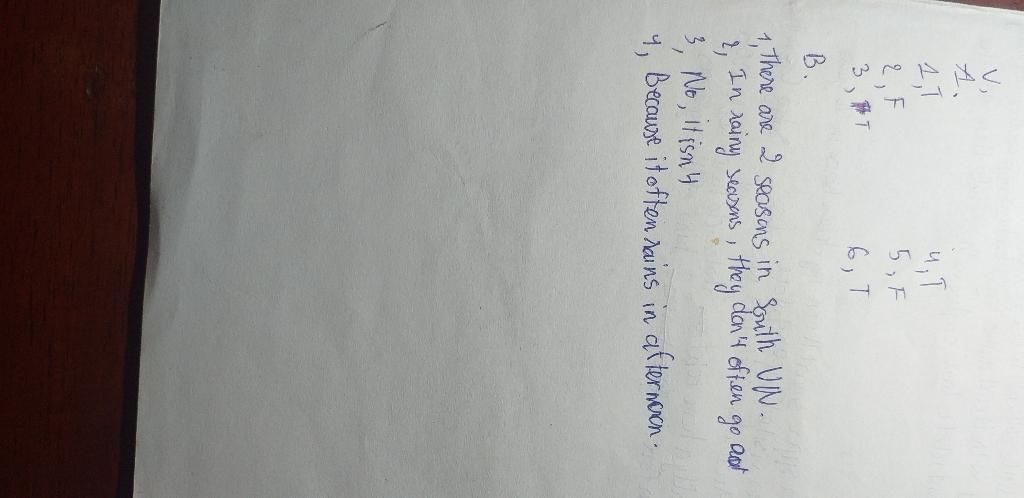 V,
A.
1, T
4, T
2, F
5, F
3, T
6, T
B.
1, There are 2 seasons in South VN.
2, In rainy seasons, they don't often go out
3, No, it isn't
4, Because it often rains in afternoon.